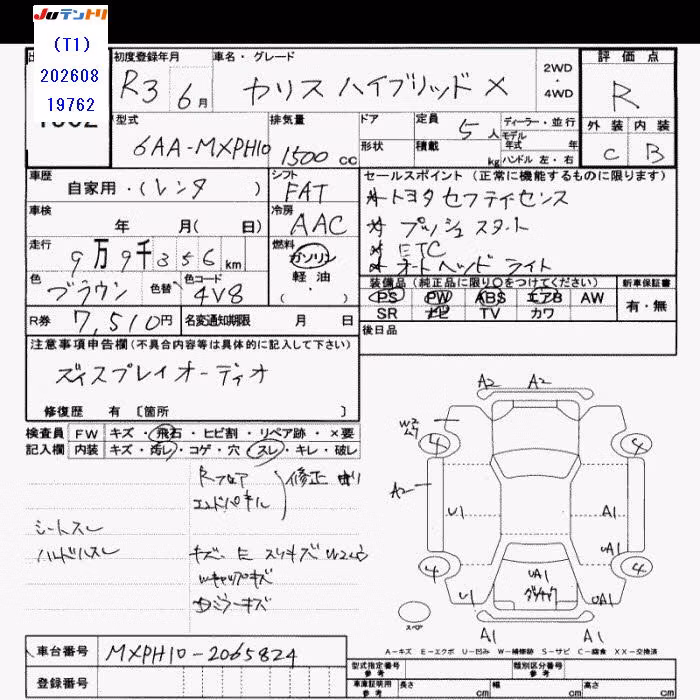 JUテントリ
(T1)
202608
19762
初度登録年月
R3 6月
車名・グレード
ヤリス ハイブリッド X
2WD
4WD
評価点
R
型式
6AA-MXPH10
排気量
1500 cc
ドア
形状
定員
5人
積載
kg
ディーラー・並行
モデル
年式 年
ハンドル 左・右
外装 内装
C B
車歴
自家用・(レンタ )
シフト
FAT
セールスポイント (正常に機能するものに限ります)
* トヨタセフティセンス
* プッシュスタート
* ETC
* オートヘッドライト
車検
年 月( 日)
冷房
AAC
走行
9万9千356km
燃料
ガソリン
軽・油
( ・ )
色
ブラウン
色替
色コード
4V8
装備品 (純正品に限り○をつけてください)
PS PW ABS エアB AW
SR ナビ TV カワ
新車保証書
有・無
R券 7,510円
名変通知期限 月 日
後日品
注意事項申告欄(不具合内容等は具体的に記入して下さい)
ディスプレイオーディオ
修復歴 有 〔箇所 〕
検査員 FW キズ・飛石・ヒビ割・リペア跡・×要
記入欄 内装 キズ・汚レ・コゲ・穴・スレ・キレ・破レ
Rフロア
エンドパネル
修正 有り
シートスレ
ハンドルスレ
キズ、E スリキズ W2
Wキャップキズ
ミラーキズ
A2 A2
W2
4 4
A2
U1 A1
UA1
4 4
UA1
U1
A1 A1
スペア
A-キズ E-エクボ U-凹み W-補修跡 S-サビ C-腐食 XX-交換済
車台番号 MXPH10-2065824
登録番号
型式指定番号
参考
類別区分番号
参考
車庫証明用
参考
長さ cm 幅 cm 高さ cm